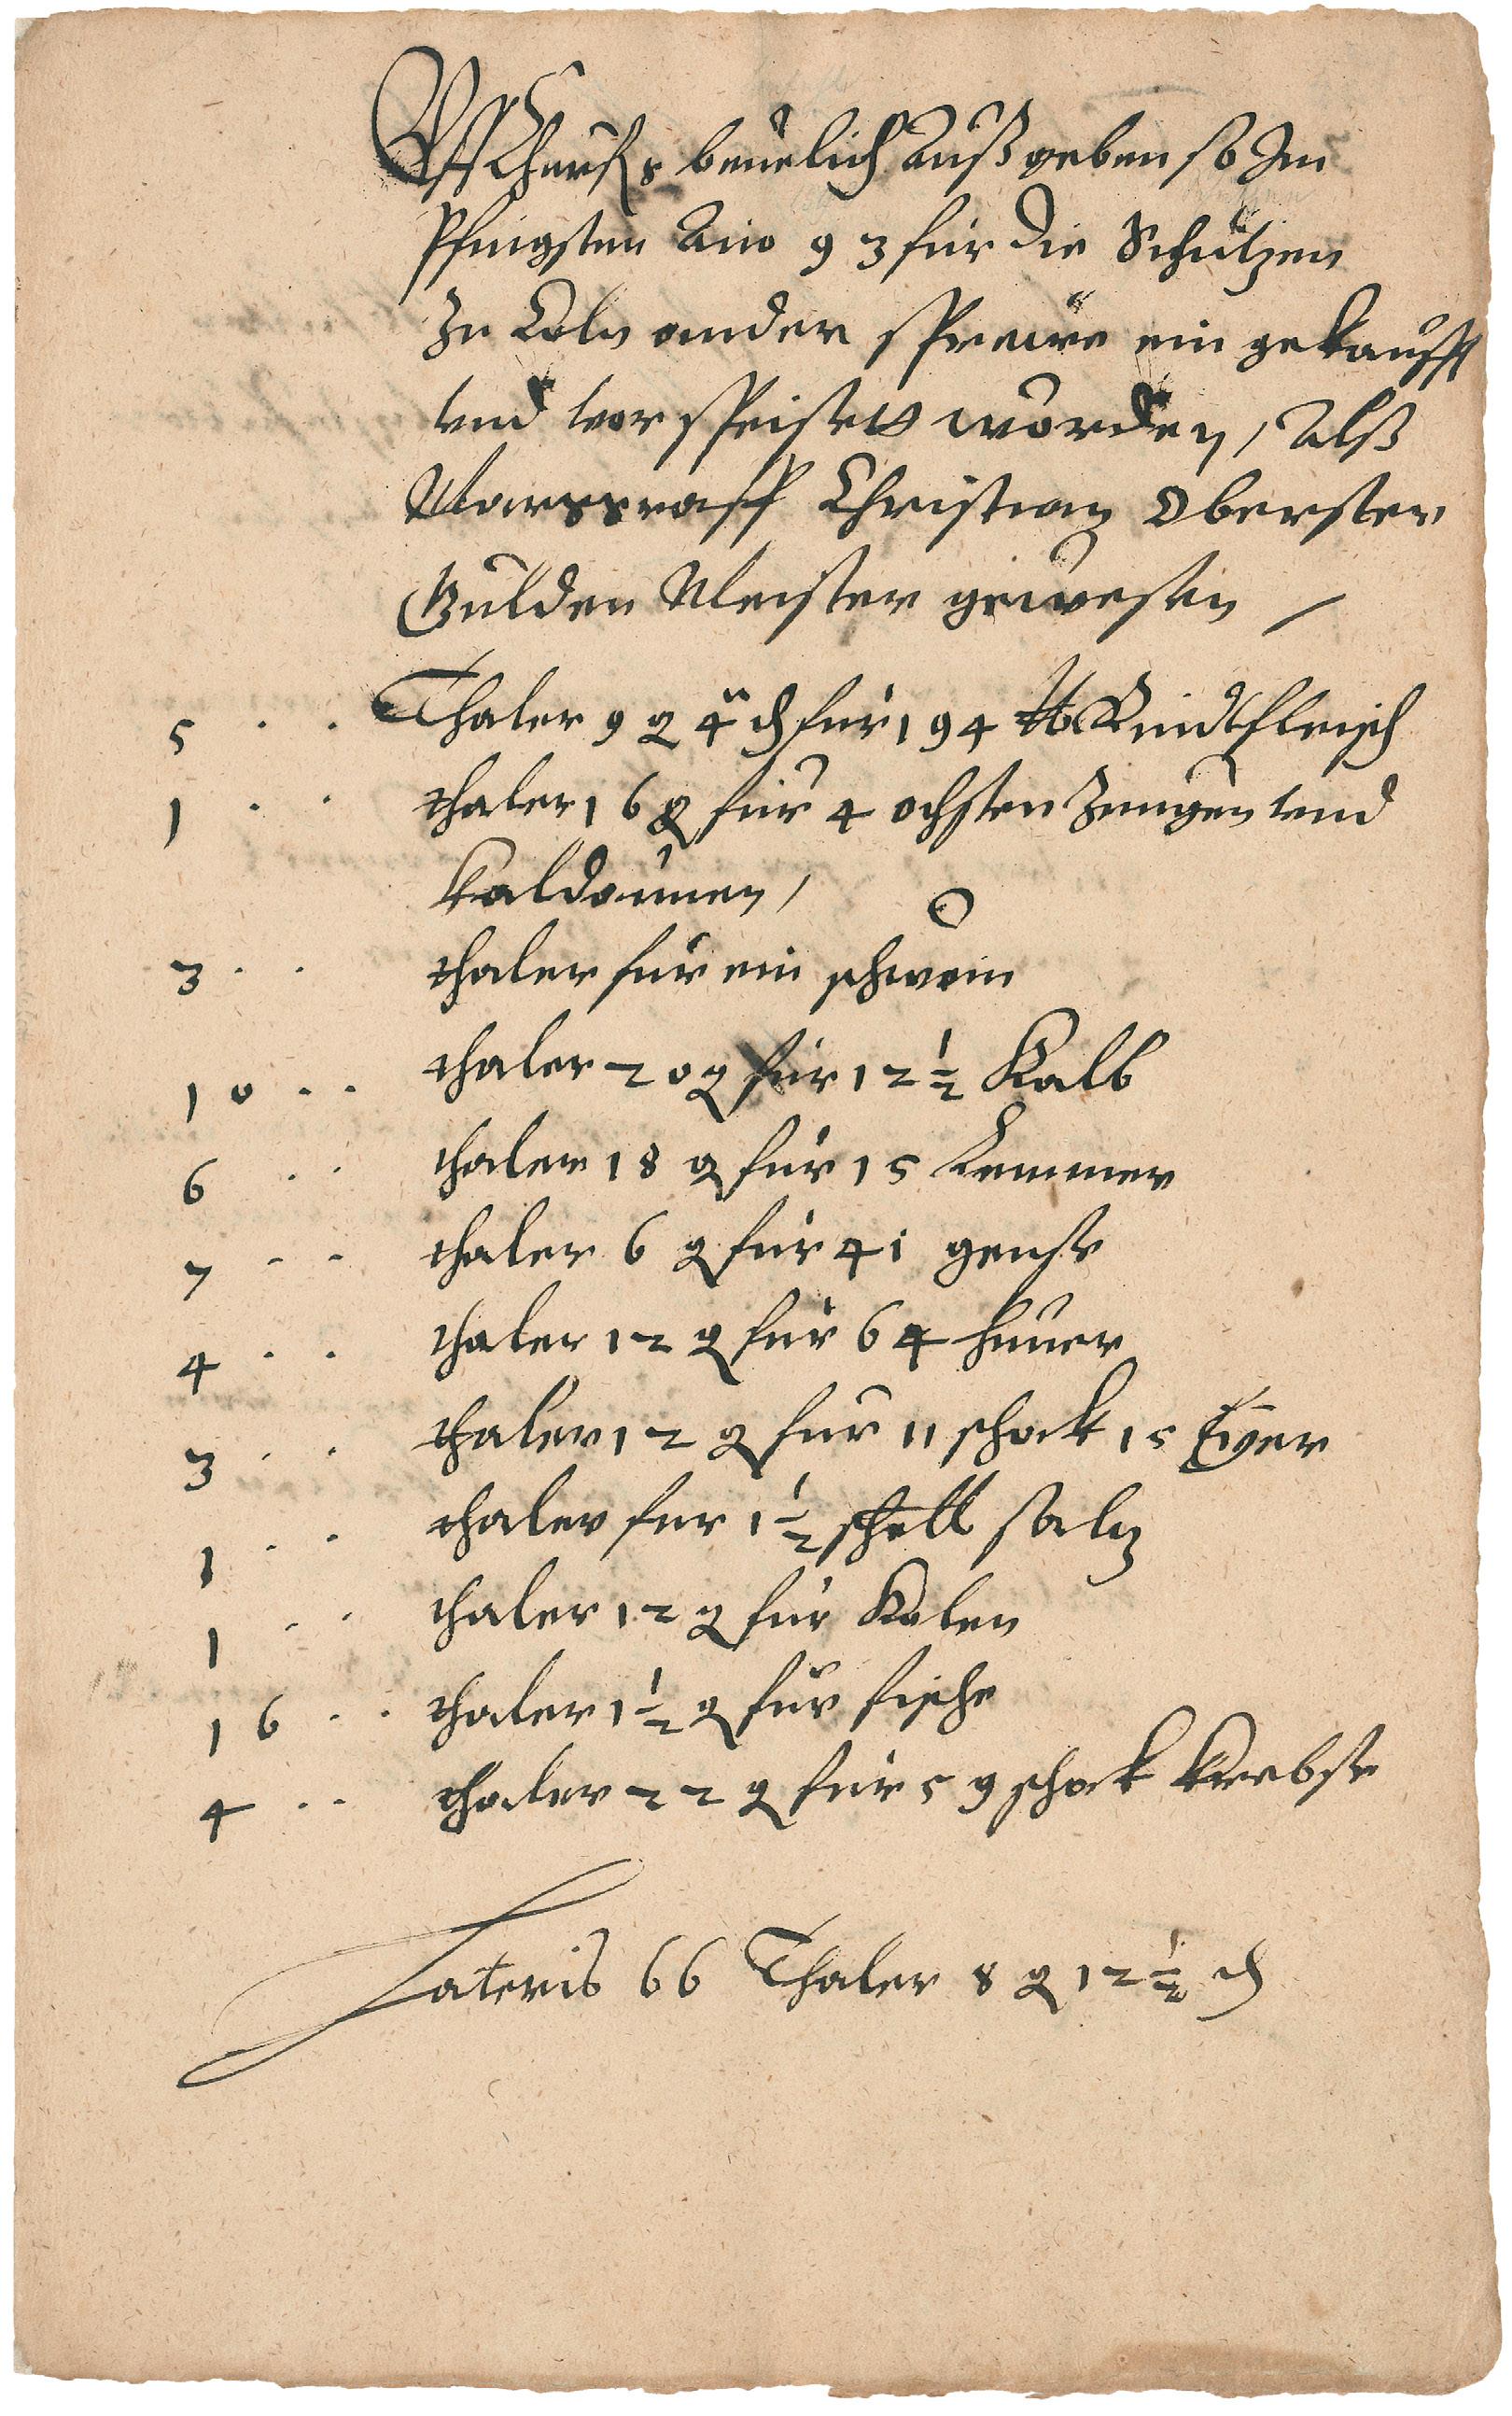 Vff Churf g beuelich Außgeben so Im
Pfingsten Ano 93 für die Schützen
Zu Coln an der Spreüe ein gekaufft
vnd vor speisett worden, Alß
Marggraff Christian Oberster
Gulden Meister gewesen /
5 . . Thaler 9 g 4 ₰ für 194 ℔ Rindtfleisch
1 . . thaler 16 g für 4 ochsen Zungen vnd
kaldaunen,
3 . . thaler für ein schwein
10 . . thaler 20 g für 12 ½ Kalb
6 . . thaler 18 g für 15 Lemmer
7 . . thaler 6 g für 41 gense
4 . . thaler 12 g für 64 huner
3 . . thaler 12 g für 11 schock 15 Eyer
1 . . thaler fur 1 ½ scheffl saltz
1 . . thaler 12 g für Kolen
16 . . thaler 1 ½ g für fische
4 . . thaler 22 g für 59 schock krebse
Lateris 66 Thaler 8 g 12 ½ ₰